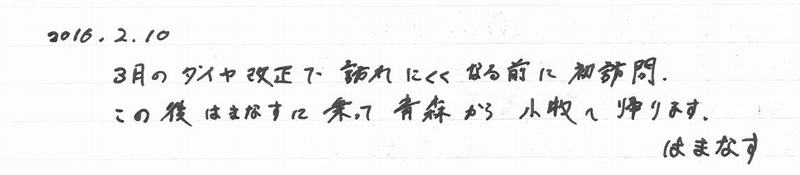 2016.2.10
3月のダイヤ改正で訪れにくくなる前に初訪問.
この後はまなすに乗って青森から小牧へ帰ります.
はまなす